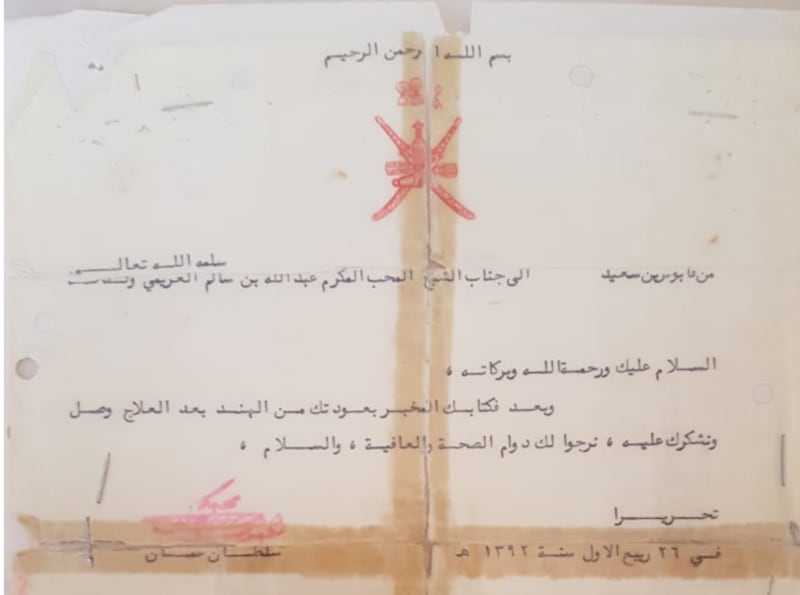 بسم الله ا رحمن الرحيم
من قابوس بن سعيد الى جناب الشيخ المحب المكرم عبدالله بن سالم العريمي
سلمه الله تعالى
السلام عليك ورحمة الله وبركاته ،
وبعد فكتابك المخبر بعودتك من الهند بعد العلاج وصل
ونشكرك عليه ، نرجوا لك دوام الصحة والعافية ، والسلام ،
تحريرا
في ٢٦ ربيع الاول سنة ١٣٩٢ هـ
سلطان عمان